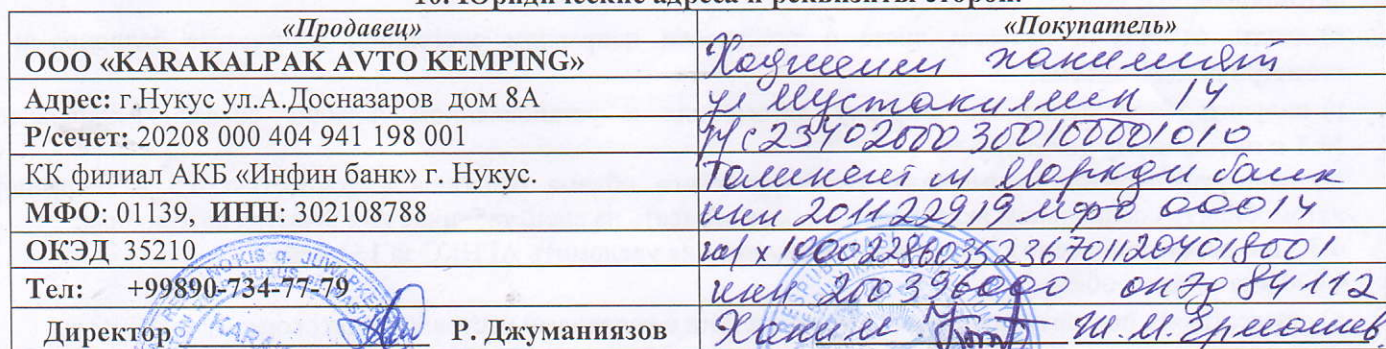 10. Юридические адреса и реквизиты сторон.
«Продавец» «Покупатель»
ООО «KARAKALPAK AVTO KEMPING» Ходжейли хакимият
Адрес: г.Нукус ул.А.Досназаров дом 8А ул Мустакиллик 14
Р/сечет: 20208 000 404 941 198 001 р/с 23402000300100001010
КК филиал АКБ «Инфин банк» г. Нукус. Ташкент ш Марказди банк
МФО: 01139, ИНН: 302108788 инн 201122919 мфо 00014
ОКЭД 35210 ш/х 100022860352367011204018001
Тел: +99890-734-77-79 инн 200396000 окэд 84112
Директор Р. Джуманиязов Хаким Ш.М.Ермашев